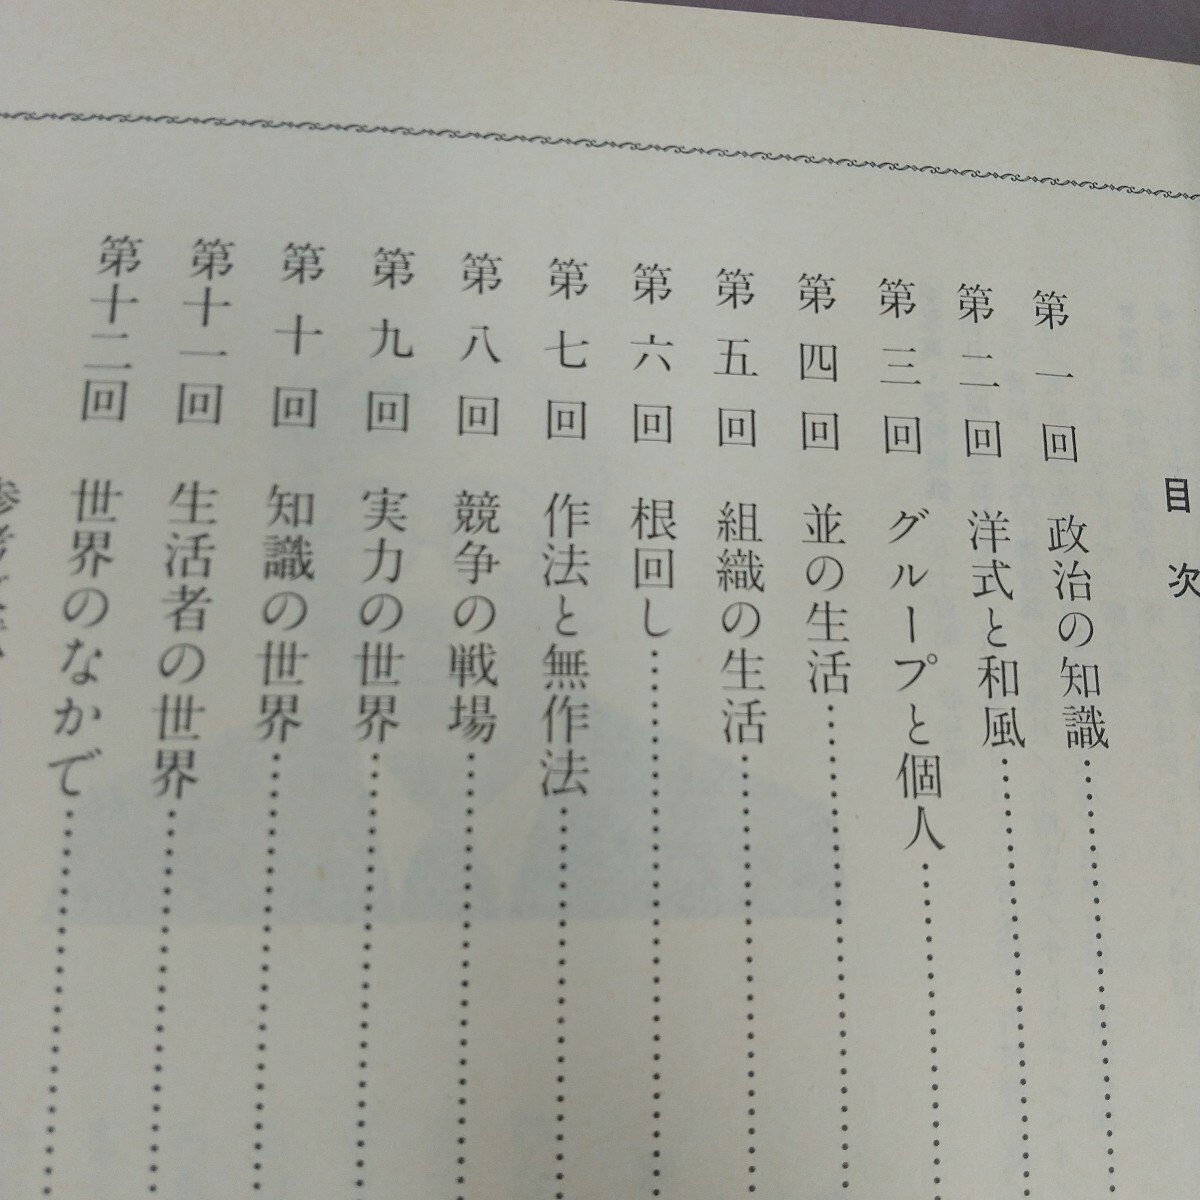 目次
第一回 政治の知識
第二回 洋式と和風
第三回 グループと個人
第四回 並の生活
第五回 組織の生活
第六回 根回し
第七回 作法と無作法
第八回 競争の戦場
第九回 実力の世界
第十回 知識の世界
第十一回 生活者の世界
第十二回 世界のなかで
参考